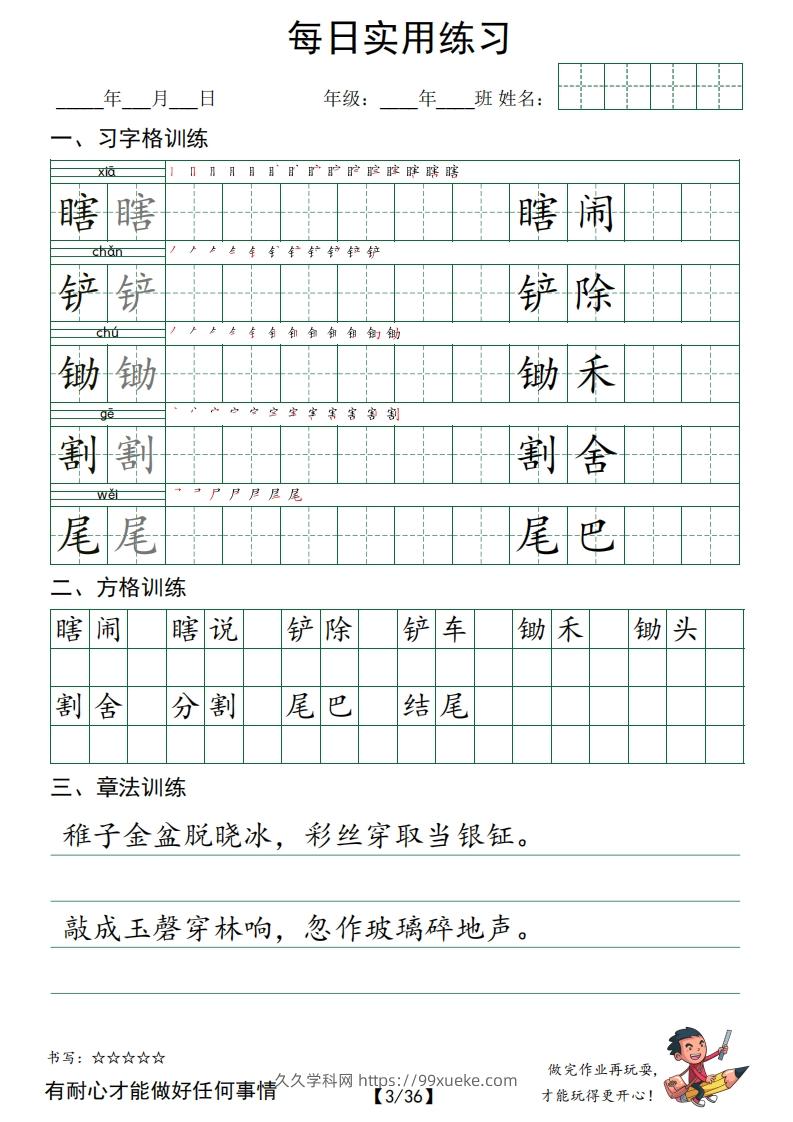 每日实用练习
_____年___月___日 年级：____年____班 姓名：
一、习字格训练
xiā
瞎 瞎 瞎 闹
chǎn
铲 铲 铲 除
chú
锄 锄 锄 禾
gē
割 割 割 舍
wěi
尾 尾 尾 巴
二、方格训练
瞎闹 瞎说 铲除 铲车 锄禾 锄头
割舍 分割 尾巴 结尾
三、章法训练
稚子金盆脱晓冰，彩丝穿取当银钲。
敲成玉磬穿林响，忽作玻璃碎地声。
书写：☆☆☆☆☆
有耐心才能做好任何事情
久久学科网 https://99xueke.com
【3/36】
做完作业再玩耍，
才能玩得更开心！